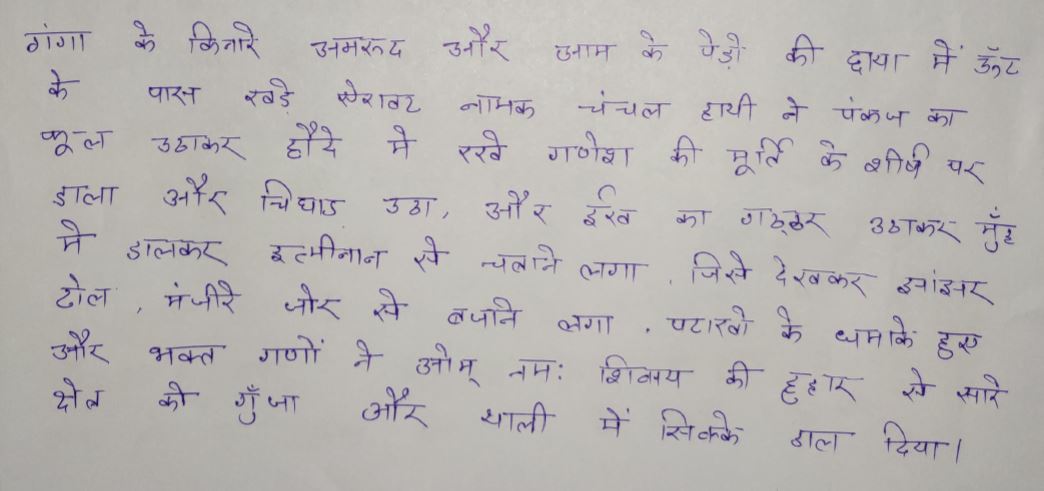 गंगा के किनारे अमरुद और आम के पेड़ो की छाया में ऊँट
के पास खड़े ऐरावट नामक चंचल हाथी ने पंकज का
फूल उठाकर हौदे मे रखे गणेश की मूर्ति के शीर्ष पर
डाला और चिघाड उठा, और ईख का गठ्ठर उठाकर मुँह
मे डालकर इत्मीनान से चबाने लगा, जिसे देखकर झांझर
ढोल, मंजीरे जोर से बजाने लगा, पटाखो के धमाके हुए
और भक्त गणों ने ओम् नमः शिवाय की हुहार से सारे
क्षेत्र को गुँजा और थाली में सिक्के डाल दिया।